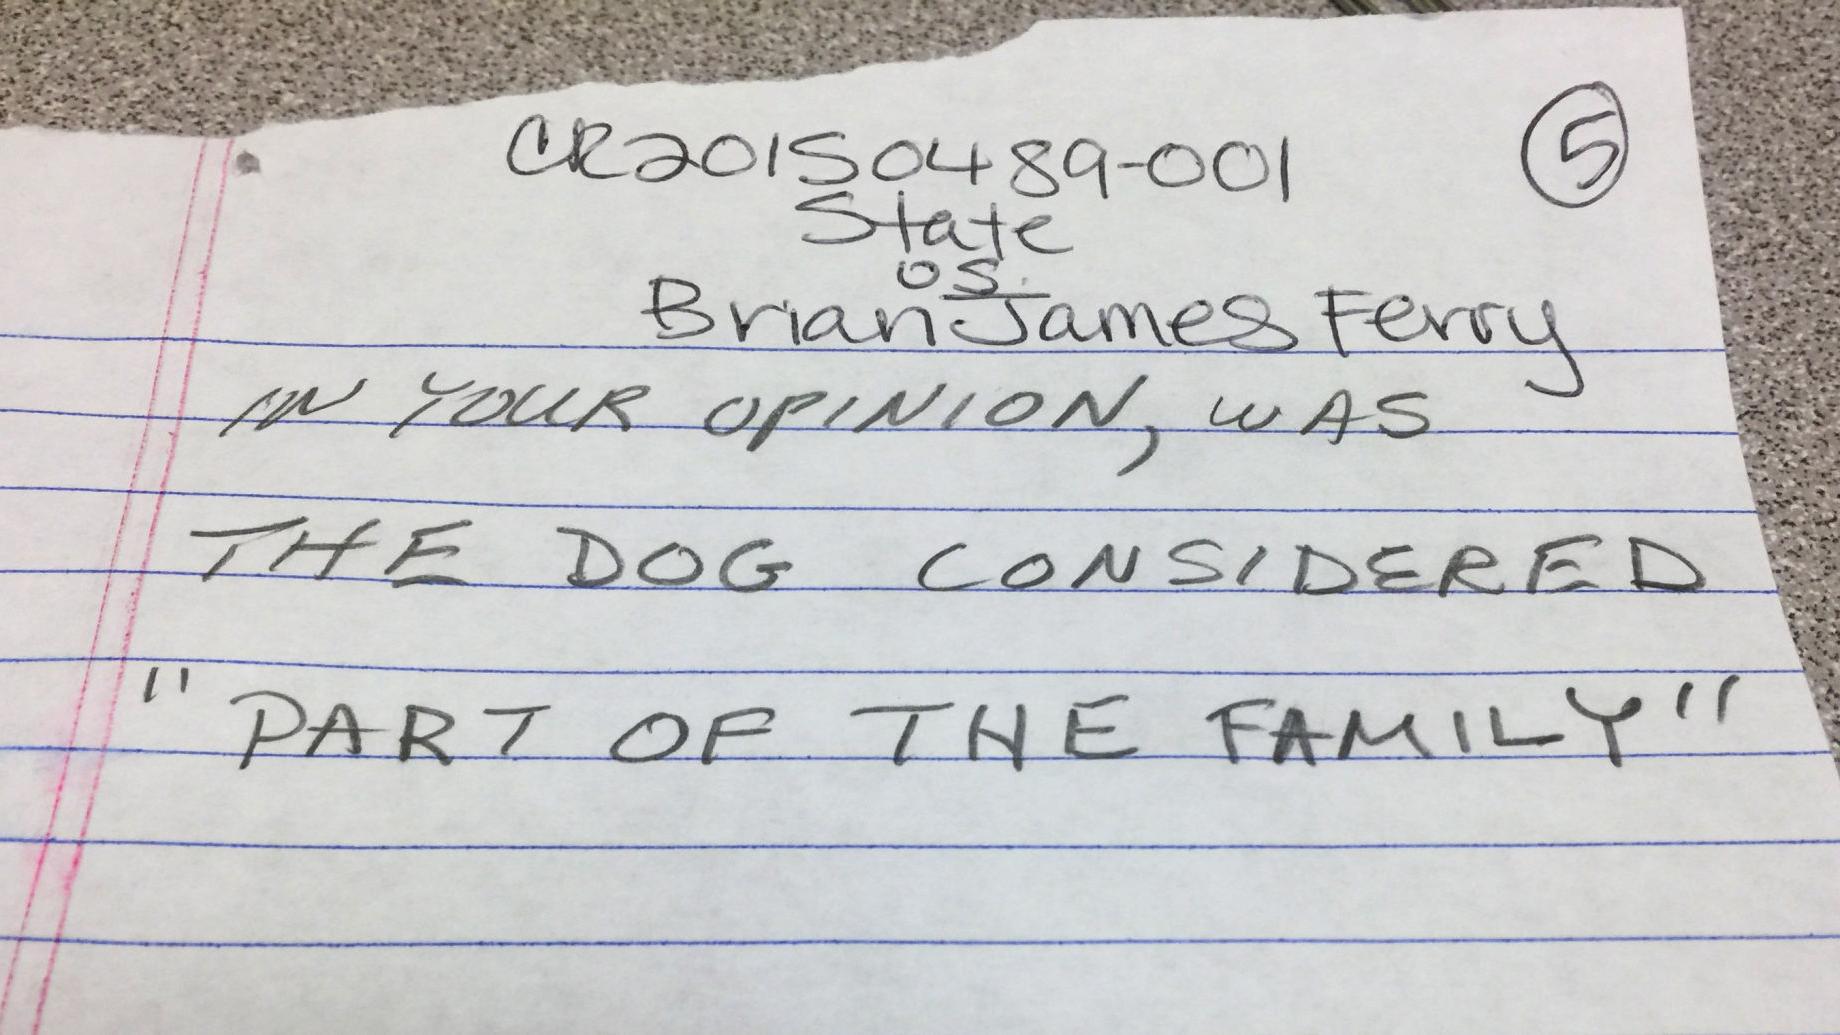 CR20150489-001
5
State
vs.
Brian James Ferry
IN YOUR OPINION, WAS
THE DOG CONSIDERED
"PART OF THE FAMILY"